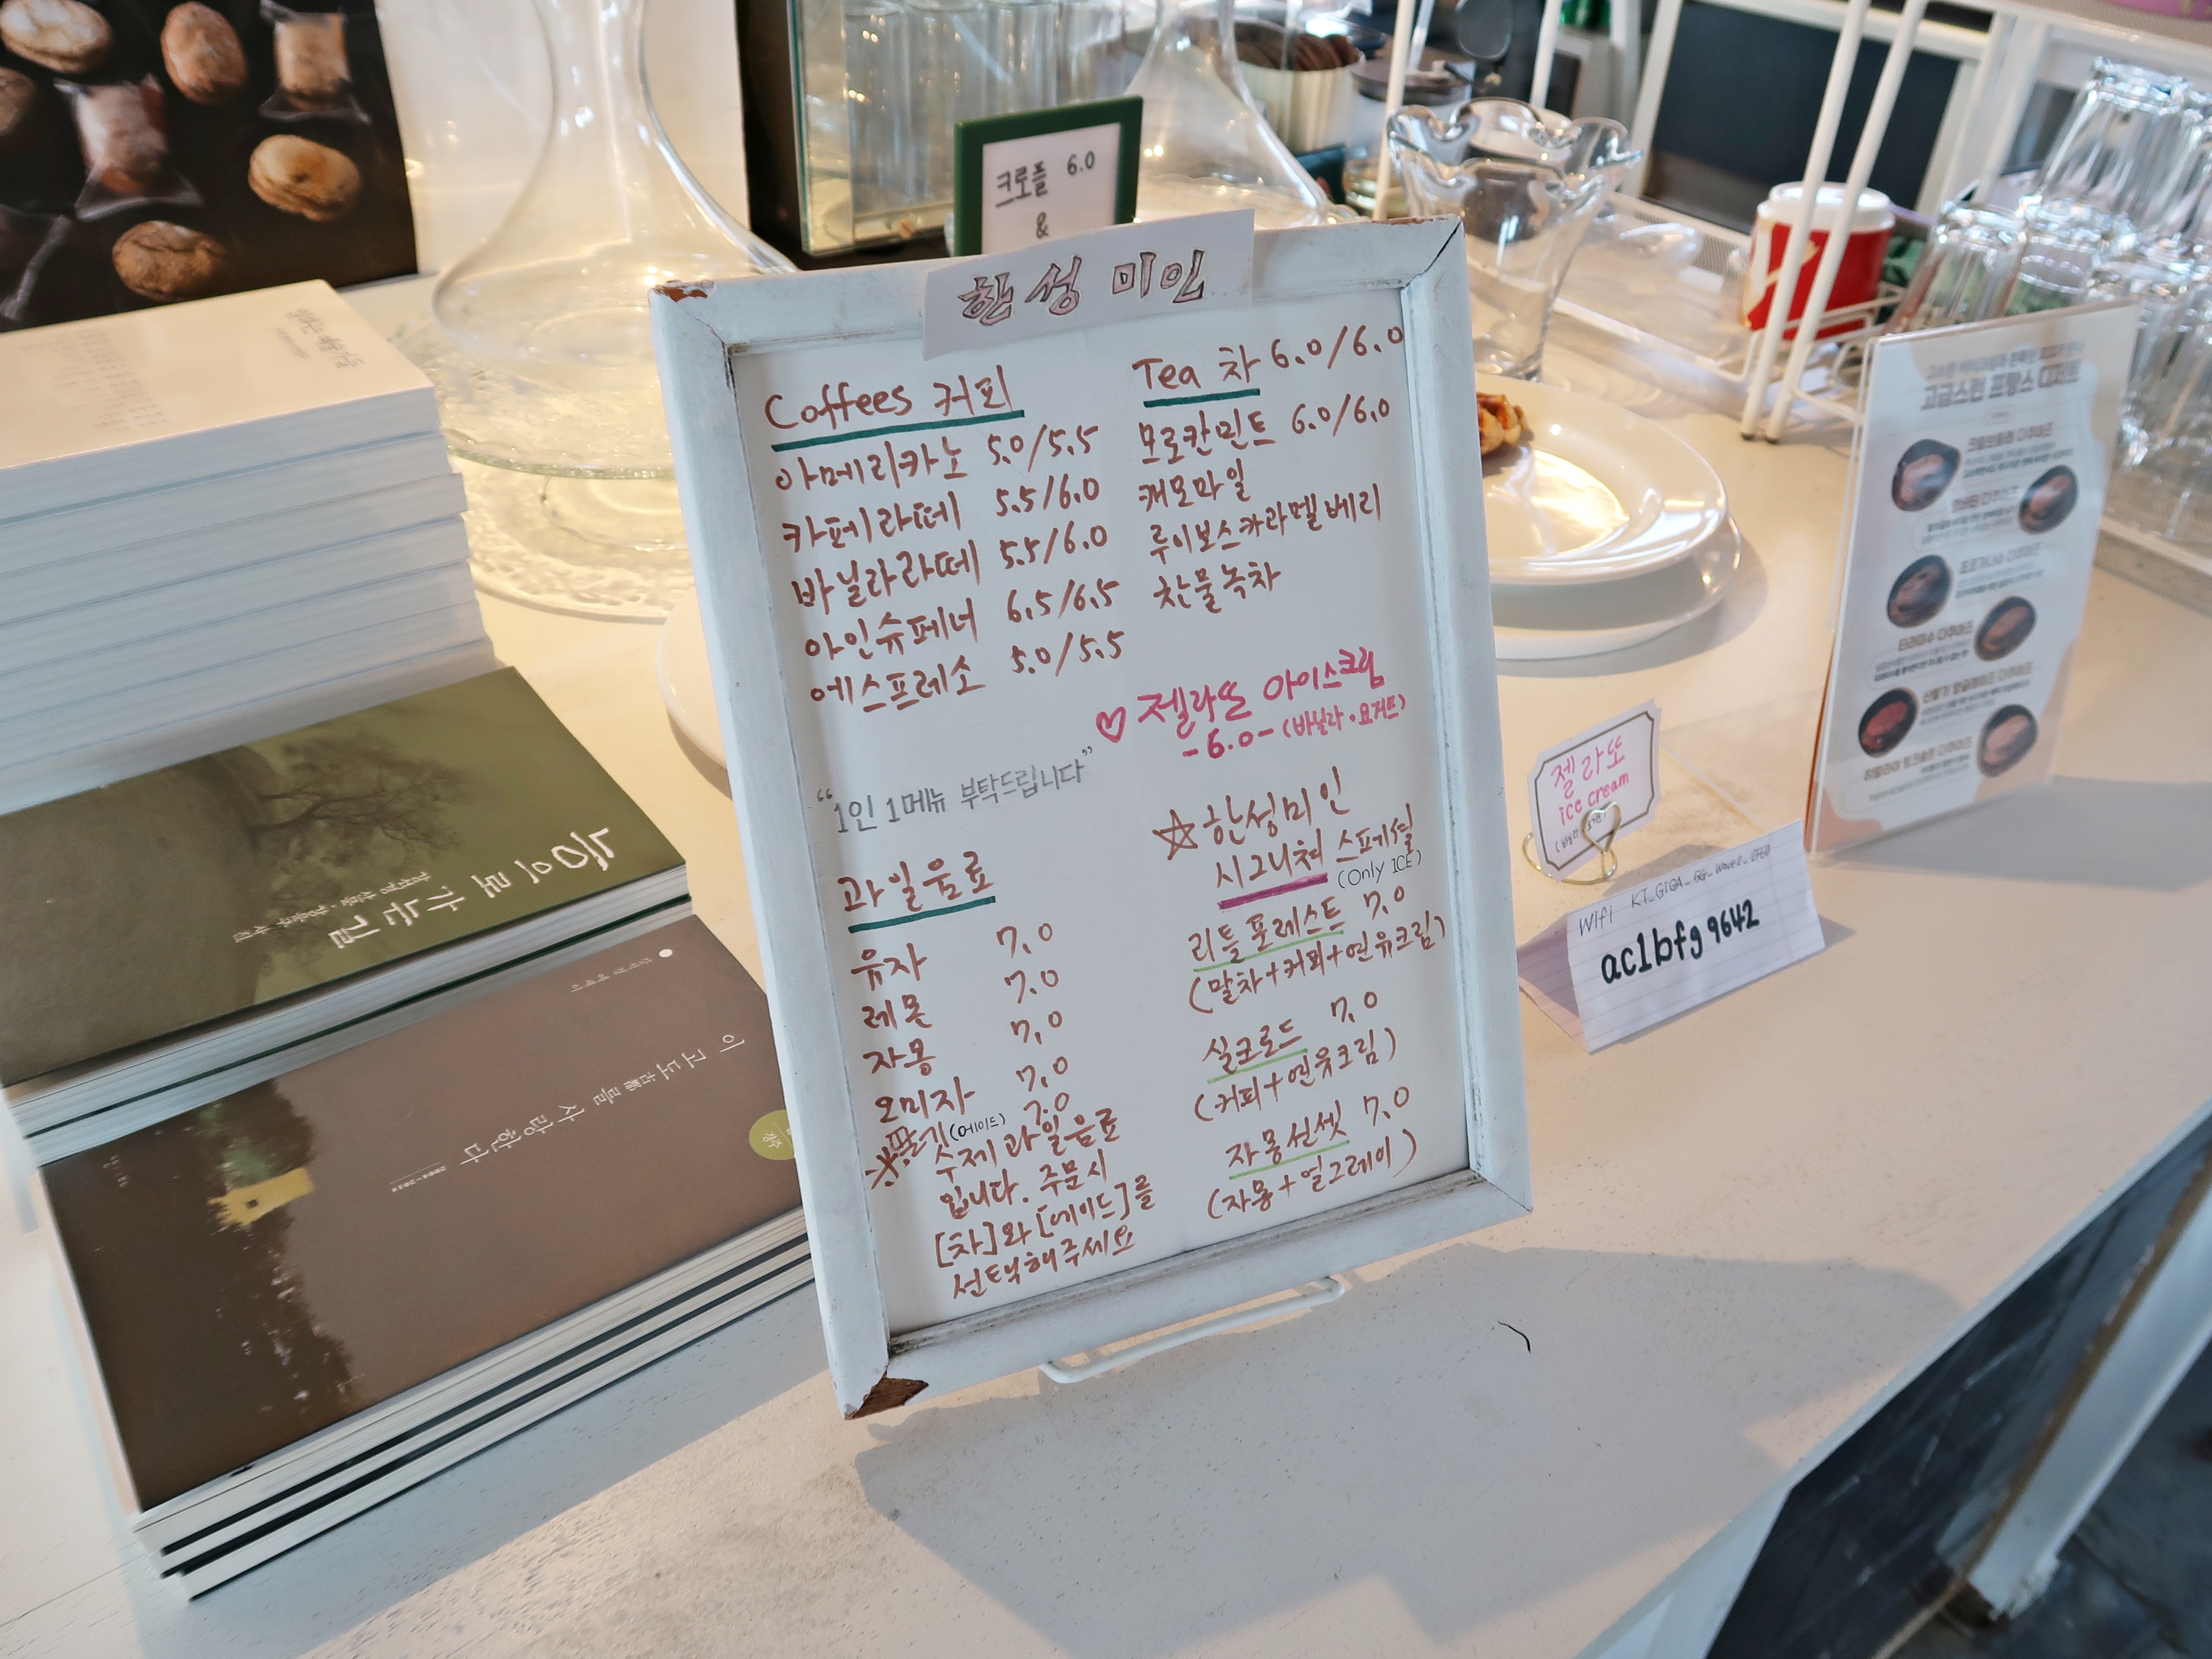 크로플 6.0
&
한성미인
Coffees 커피
아메리카노 5.0/5.5
카페라떼 5.5/6.0
바닐라라떼 5.5/6.0
아인슈페너 6.5/6.5
에스프레소 5.0/5.5
"1인 1메뉴 부탁드립니다"
과일음료
유자 7.0
레몬 7.0
자몽 7.0
오미자 7.0
(에이드) 7.0
※ 수제과일음료
입니다. 주문시
[차]와 [에이드]를
선택해주세요
Tea 차 6.0/6.0
모로칸민트 6.0/6.0
캐모마일
루이보스카라멜베리
찬물녹차
♡ 젤라또 아이스크림
-6.0- (바닐라·요거트)
☆한성미인
시그니쳐 스페셜
(Only ICE)
리틀포레스트 7.0
(말차+커피+연유크림)
실크로드 7.0
(커피+연유크림)
자몽선셋 7.0
(자몽+얼그레이)
젤라또
ice cream
Wifi KT_GIGA_5G_Wave2_
ac1bfg9642
고급스런 프랑스 디저트
티라미수 다쿠아즈
숲으로 가는 길
이 고도를 사랑한다